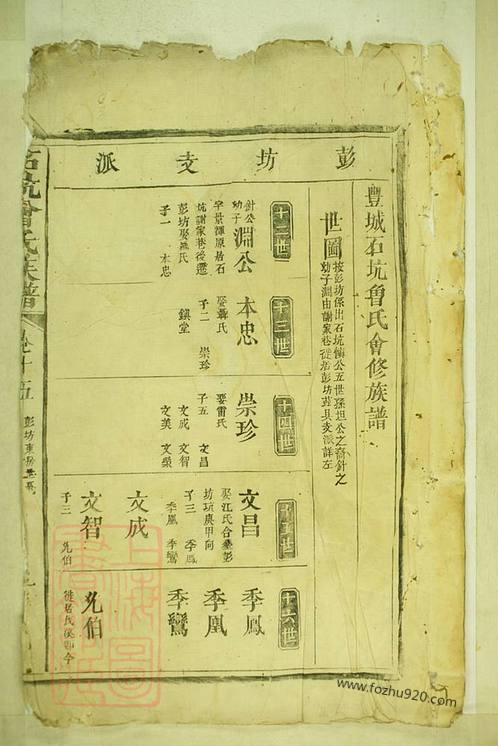 彭坊支派
豐城石坑魯氏會修族譜
世圖
按彭坊係出石坑公五世孫坦公之裔針之
幼子淵由謝家巷徙居彭坊茲具支派詳左
十二世
淵公
針公幼子
字景渾原居石
坑謝家巷後遷
彭坊娶熊氏
子一 本忠
十三世
本忠
娶聶氏
子二 崇珍
鎮堂
十四世
崇珍
娶雷氏
子五 文昌
文成 文智
文美 文榮
十五世
文昌
娶江氏合葬彭
坊坑庚甲向
子三 季鳳
季凰 季鸞
文成
文智
子三 允伯
十六世
季鳳
季凰
季鸞
允伯
徙居民溪
石坑魯氏族譜
卷十五
彭坊
上海圖書館藏
www.fozhu920.com